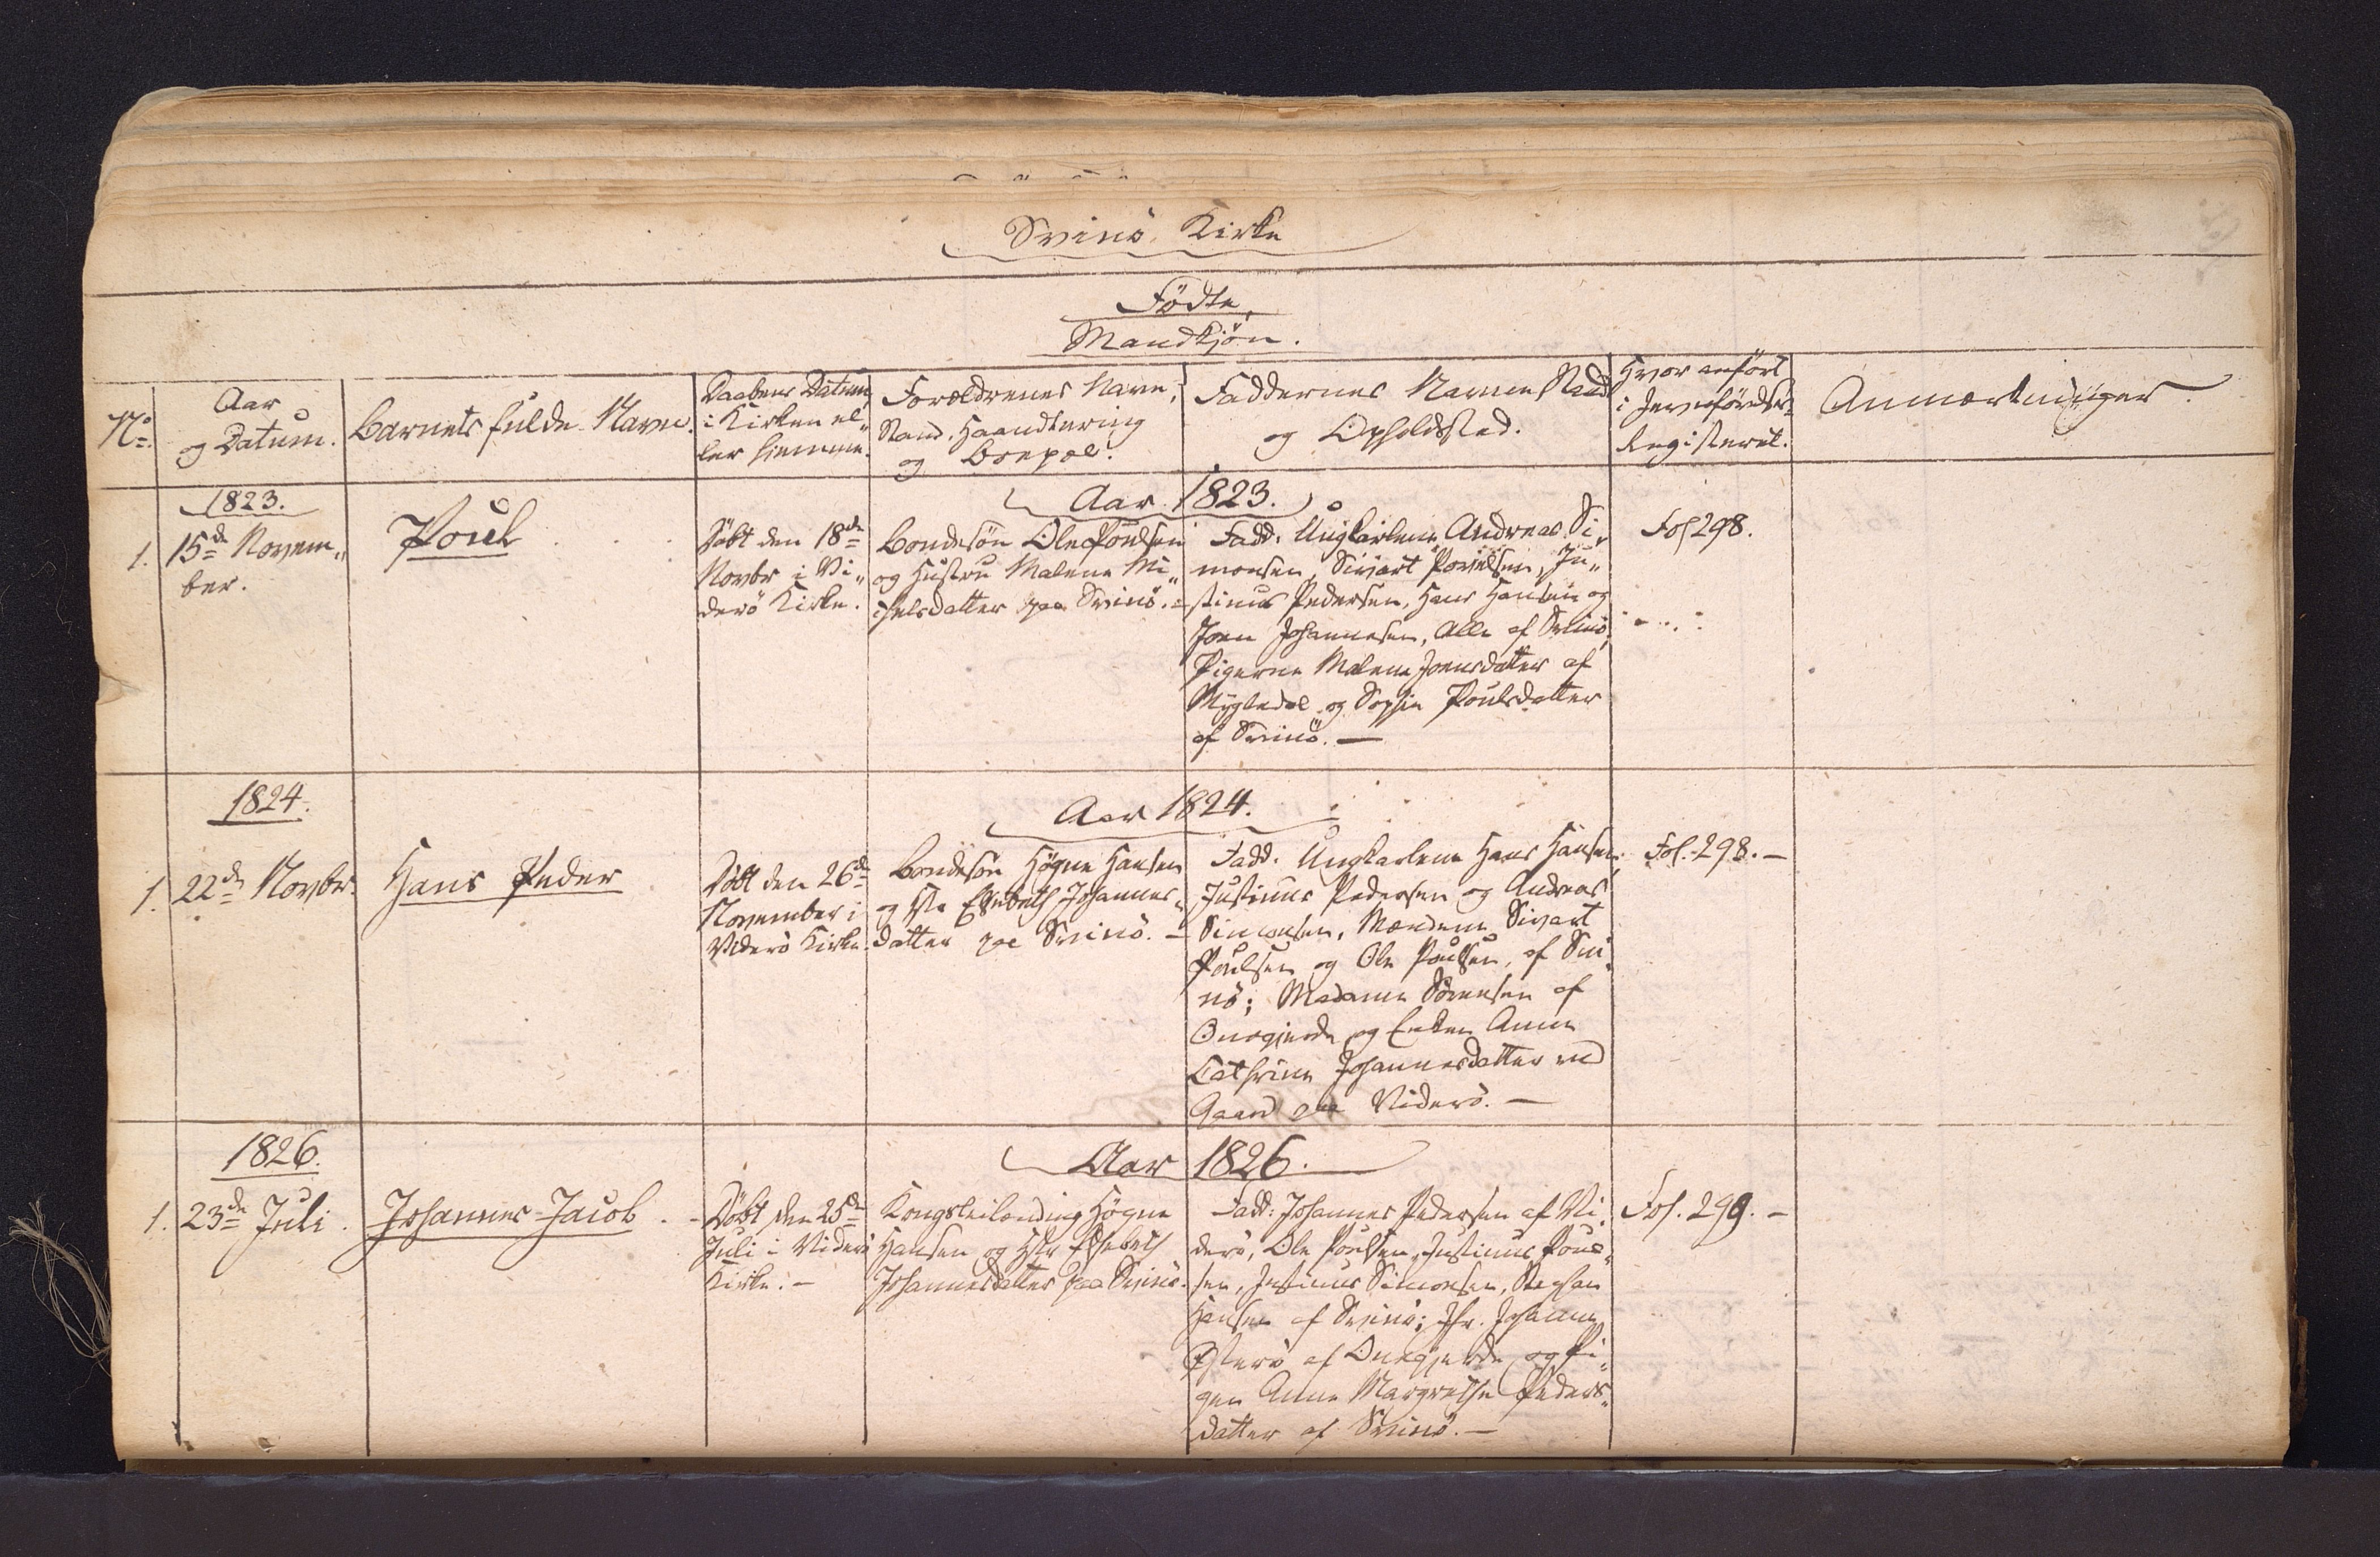 Svinö Kirke
Födte,
Mandkjön.
No.
Aar
og Datum.
Barnets fulde Navn.
Daabens Datum
i Kirken el„
ler hiemme.
Forældrenes Navn,
Stand, Haandtering
og Boepæl.
Faddernes Navne Stand
og Opholdssted.
Hvor anført
i Jevnførelses
Registeret.
Anmærkninger.
1823.
Aar 1823.
1.
15de Novem„
ber.
Poul
Døbt den 18de
Novbr i Vi„
derö Kirke.
Bondesön Ole Poulsen
og Hustru Malene Mi„
chelsdatter paa Svinö. –
Fadd. Ungkarlene Andreas Si„
monsen, Sivart Poulsen, Ju„
stinus Pedersen, Hans Hansen og
Joen Johannesen, Alle af Svinö,
Pigerne Malene Joensdatter af
Mygledal og Sophie Poulsdatter
af Svinö. —
Fol 298.
1824.
Aar 1824.
1.
22de Novbr.
Hans Peder
Döbt den 26de
November i
Viderö Kirke.
Bondesön Högne Hansen
og Elsebeth Johannes„
datter paa Svinö. –
Fadd. Ungkarlene Hans Hansen,
Justinus Pedersen og Andreas
Simonsen, Mændene Sivart
Poulsen og Ole Poulsen, af Svi„
nö; Madame Sörensen af
Onagjerde og Enken Anne
Cathrine Johannesdatter ved
Gaard paa Viderö. —
Fol. 298. –
1826.
Aar 1826.
1.
23de Juli.
Johannes Jacob.
Döbt den 25de
Juli i Viderö
Kirke. –
Kongsleilænding Högne
Hansen og Hstr Elsebeth
Johannesdatter paa Svinö.
Fadd: Johannes Pedersen af Vi„
derö, Ole Poulsen, Justinus Poul„
sen, Justinus Simonsen, Stephan
Hansen af Svinö; Jfr. Johanne
Østerö af Onagjerde og Pi„
gen Anne Margrethe Peders„
datter af Svinö. —
Fol. 299. –